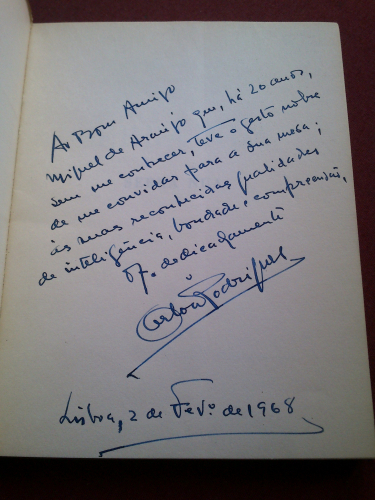 Ao Bom Amigo
Miguel de Araújo que, há 20 anos,
sem me conhecer, teve o gesto nobre
de me convidar para a sua mesa;
às suas reconhecidas qualidades
de inteligência, bondade e compreensão,
of. dedicadamente
Rodrigues
Lisboa, 2 de Fevº. de 1968